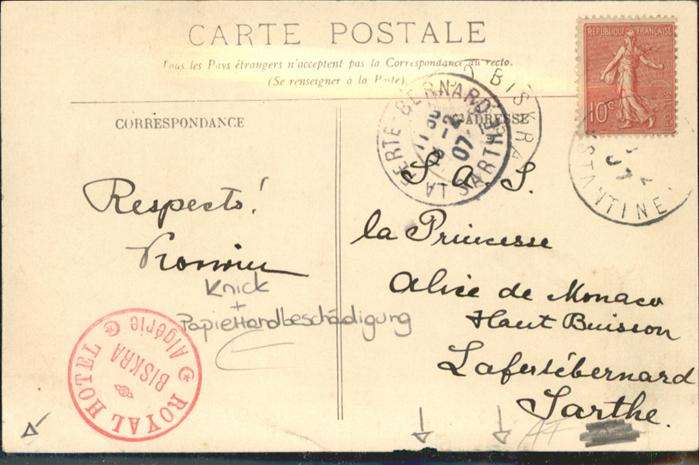 CARTE POSTALE
Tous les Pays étrangers n'acceptent pas la Correspondance au recto.
(Se renseigner à la Poste)
REPUBLIQUE FRANÇAISE
10c
BISKRA
CONSTANTINE
LA FERTE-BERNARD
SARTHE
07
CORRESPONDANCE
ADRESSE
Respects!
S. A. S.
la Princesse
Alice de Monaco
Haut Buisson
Lafertébernard
Sarthe.
Knick
+
Papier Randbeschädigung
ROYAL HOTEL
BISKRA
Algérie